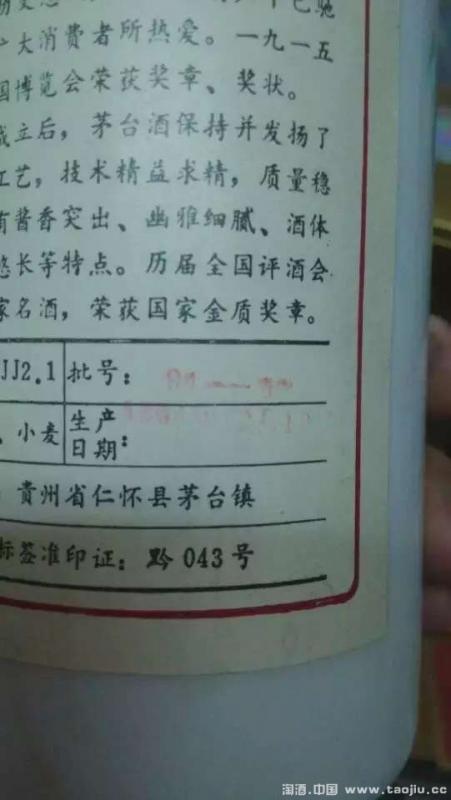 大消费者所热爱。一九一五
国博览会荣获奖章、奖状。
成立后，茅台酒保持并发扬了
工艺，技术精益求精，质量稳
有酱香突出、幽雅细腻、酒体
悠长等特点。历届全国评酒会
家名酒，荣获国家金质奖章。
JJ2.1 批号：
、小麦 生产日期：
贵州省仁怀县茅台镇
标签准印证：黔043号
淘酒.中国 www.taojiu.cc